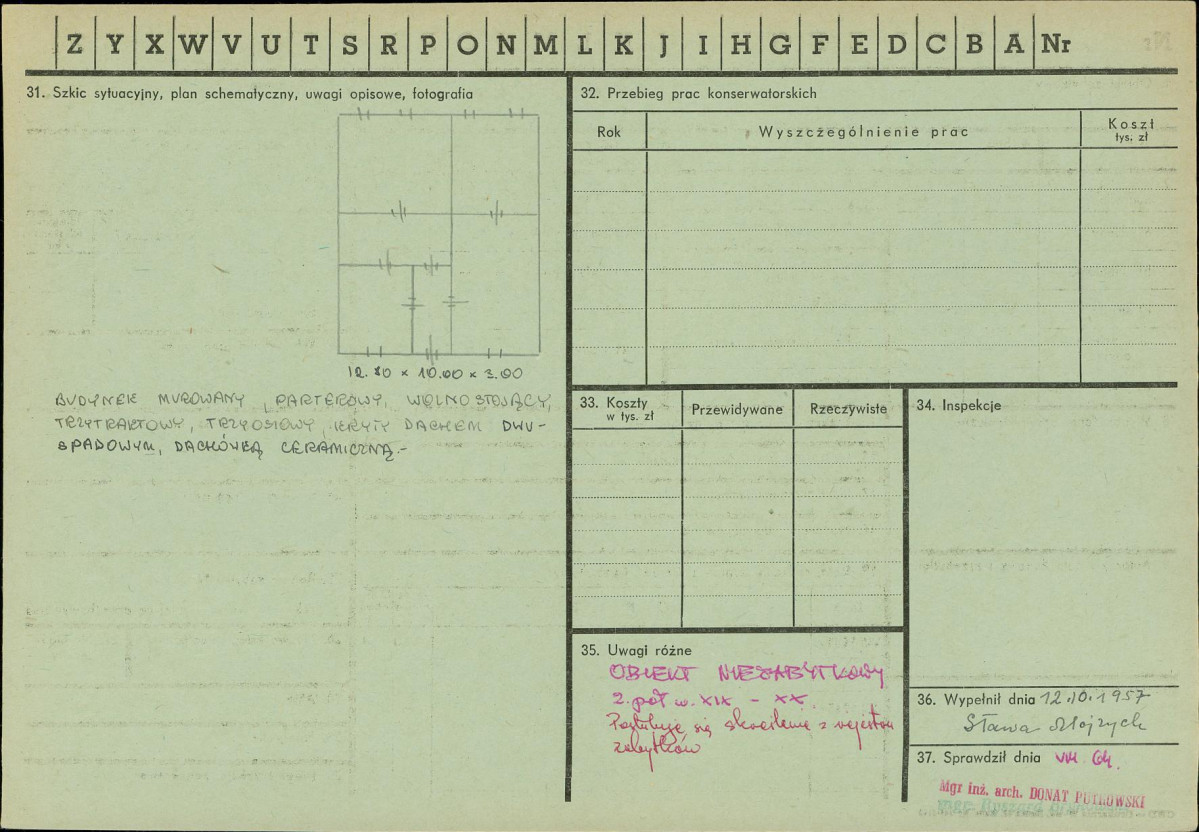 Z Y X W V U T S R P O N M L K J I H G F E D C B A Nr
31. Szkic sytuacyjny, plan schematyczny, uwagi opisowe, fotografia
12.80 x 10.00 x 3.00
BUDYNEK MUROWANY, PARTEROWY, WOLNOSTOJĄCY,
TRZYTRAKTOWY, TRZYOSIOWY, KRYTY DACHEM DWU-
SPADOWYM, DACHÓWKĄ CERAMICZNĄ.-
32. Przebieg prac konserwatorskich
Rok Wyszczególnienie prac Koszt
tys. zł
33. Koszty
w tys. zł
Przewidywane Rzeczywiste
34. Inspekcje
35. Uwagi różne
OBIEKT NIEZABYTKOWY
2. poł. w. XIX - XX.
Postuluje się skreślenie z rejestru
zabytków
36. Wypełnił dnia 12.10.1957
Sława
37. Sprawdził dnia VIII 64.
Mgr inż. arch. DONAT PUTKOWSKI
mgr Ryszard